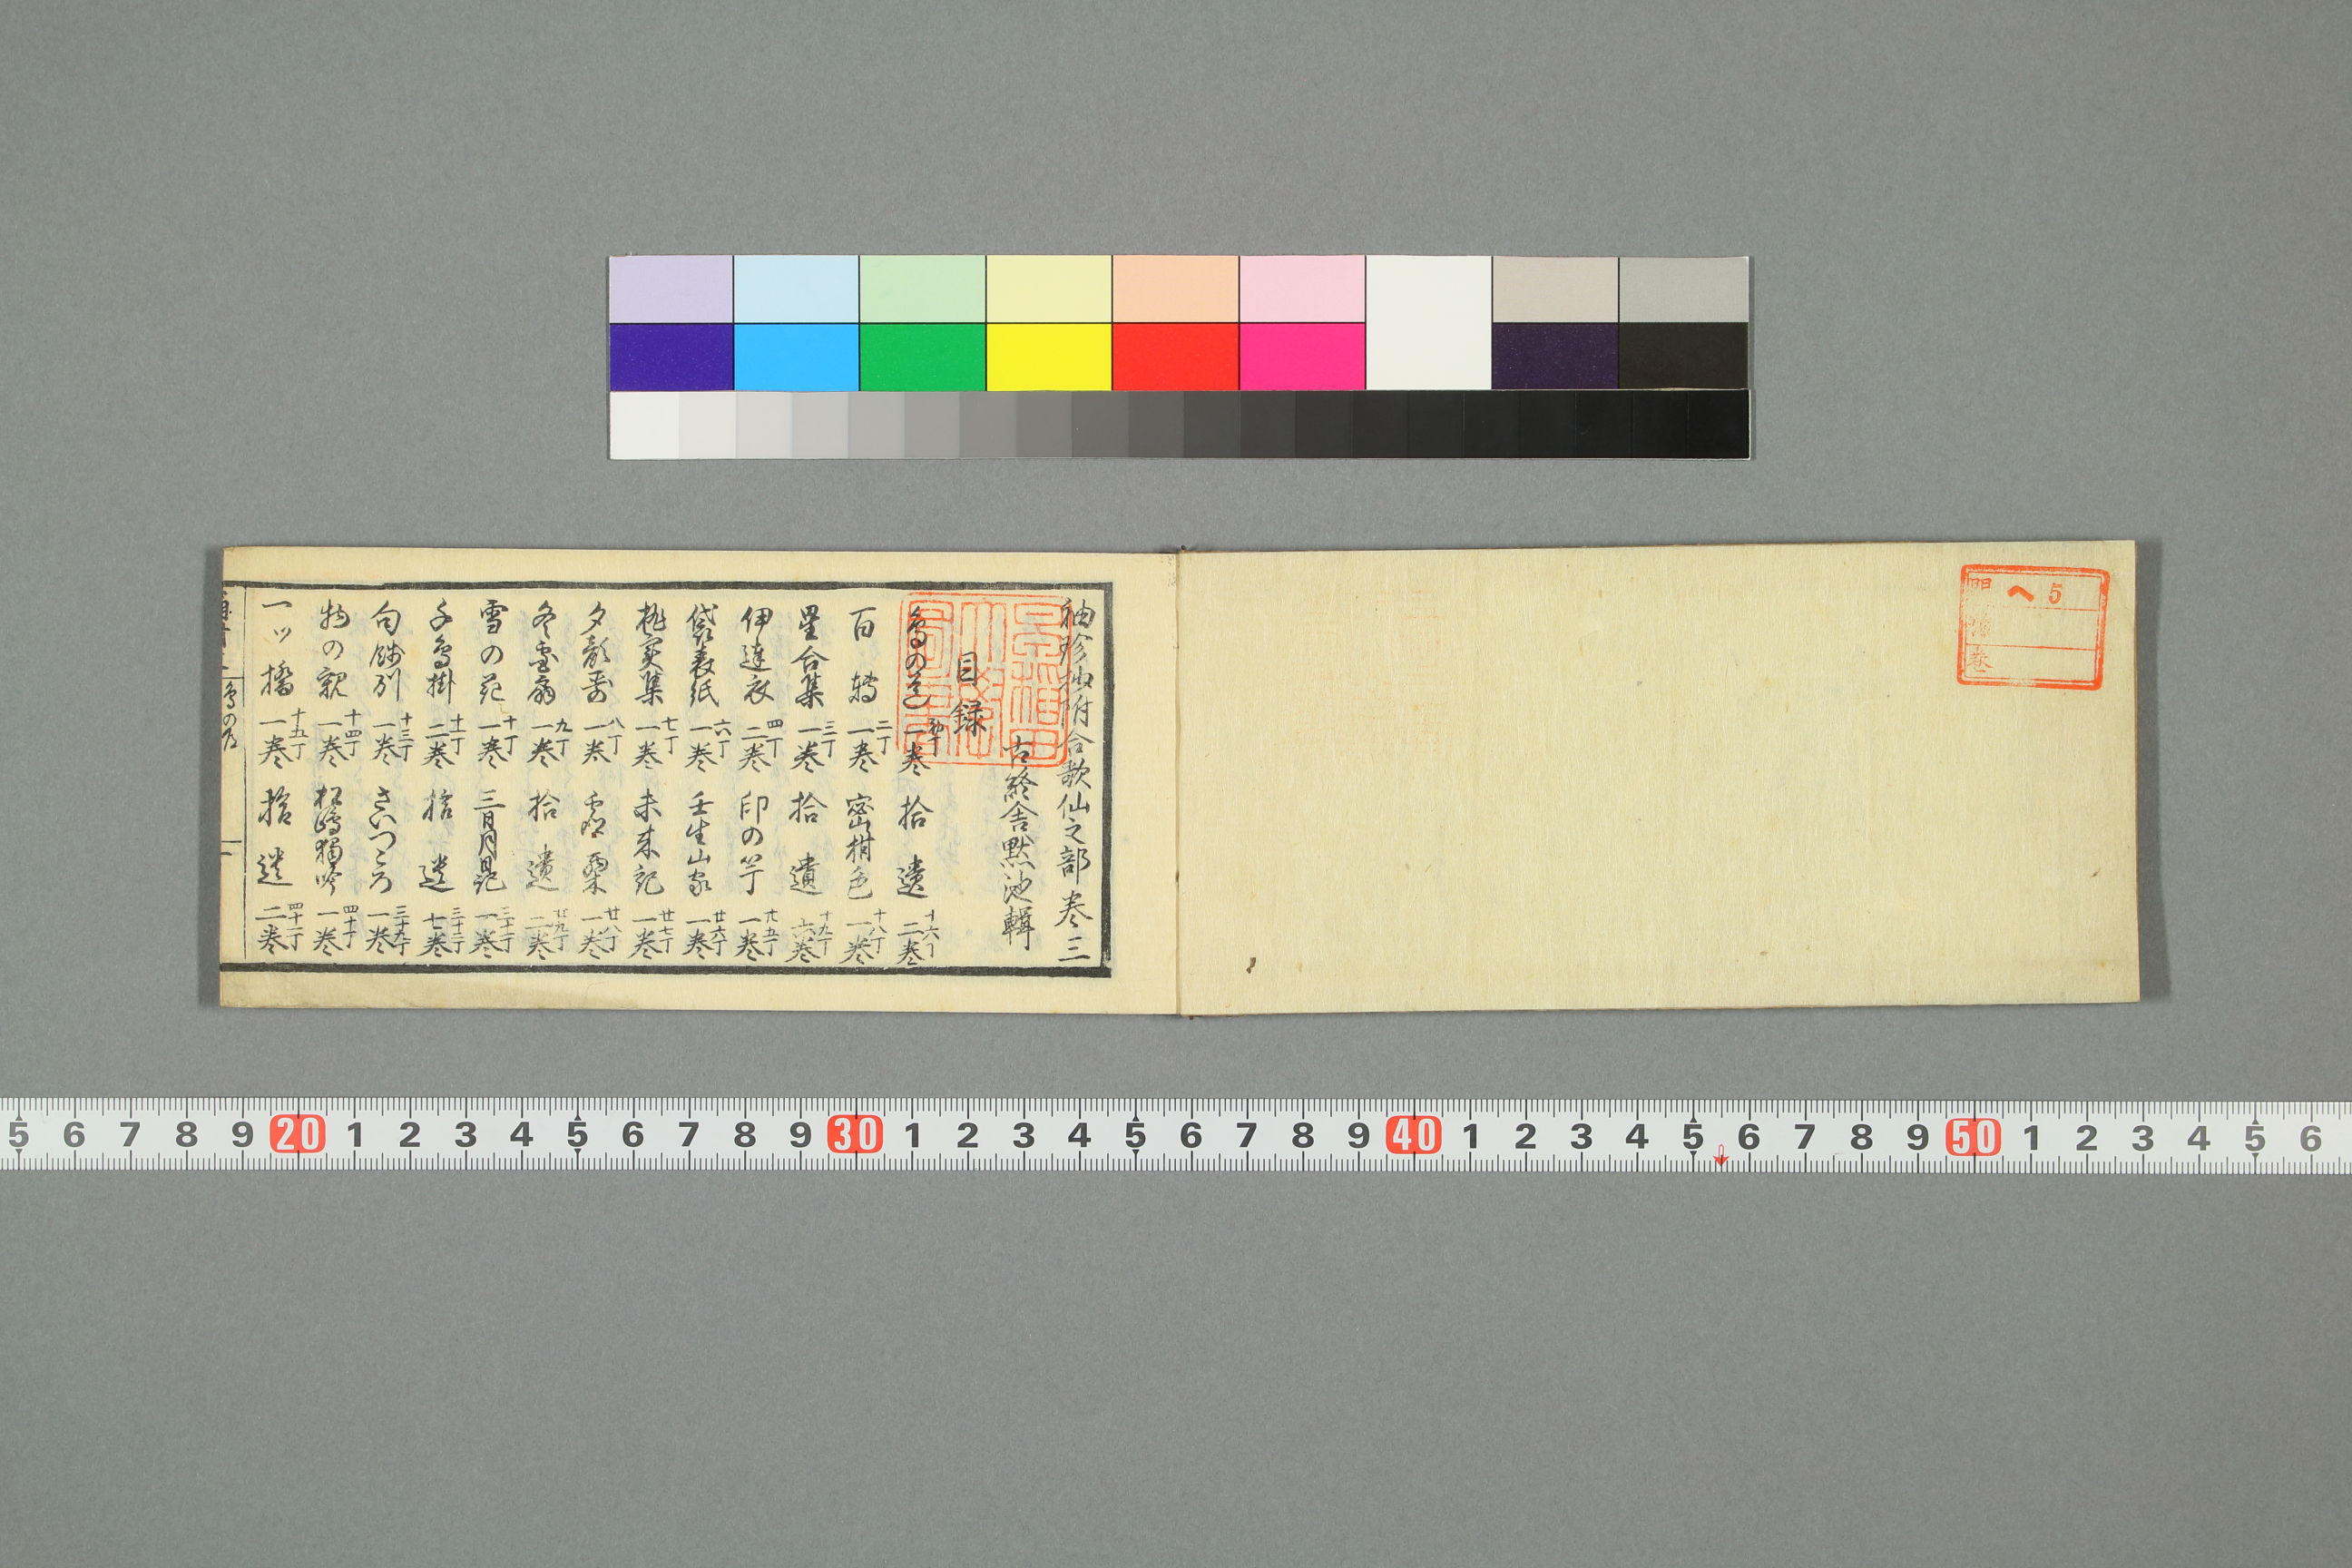 袖珍抄附合歌仙之部 巻三
古終舎黙池輯
目録
鳥の道 初丁 二巻 拾遺 十六丁 二巻
百囀 二丁 一巻 密柑色 十八丁 一巻
星合集 三丁 一巻 拾遺 十九丁 六巻
伊達衣 四丁 二巻 印の竿 廿五丁 一巻
袋表紙 六丁 一巻 壬生山家 廿六丁 一巻
桃実集 七丁 一巻 未来記 廿七丁 一巻
夕顔 八丁 一巻 虚栗 廿八丁 一巻
冬扇 九丁 一巻 拾遺 廿九丁 二巻
雪の花 十丁 一巻 三日月記 三十一丁 一巻
千鳥掛 十一丁 二巻 拾遺 三十二丁 七巻
句餞別 十三丁 一巻 さいつころ 三十九丁 一巻
物の親 十四丁 一巻 独吟 四十丁 一巻
一ッ橋 十五丁 一巻 拾遺 四十一丁 二巻
鳥の
一
ヘ 5
巻
5 6 7 8 9 20 1 2 3 4 5 6 7 8 9 30 1 2 3 4 5 6 7 8 9 40 1 2 3 4 5 6 7 8 9 50 1 2 3 4 5 6